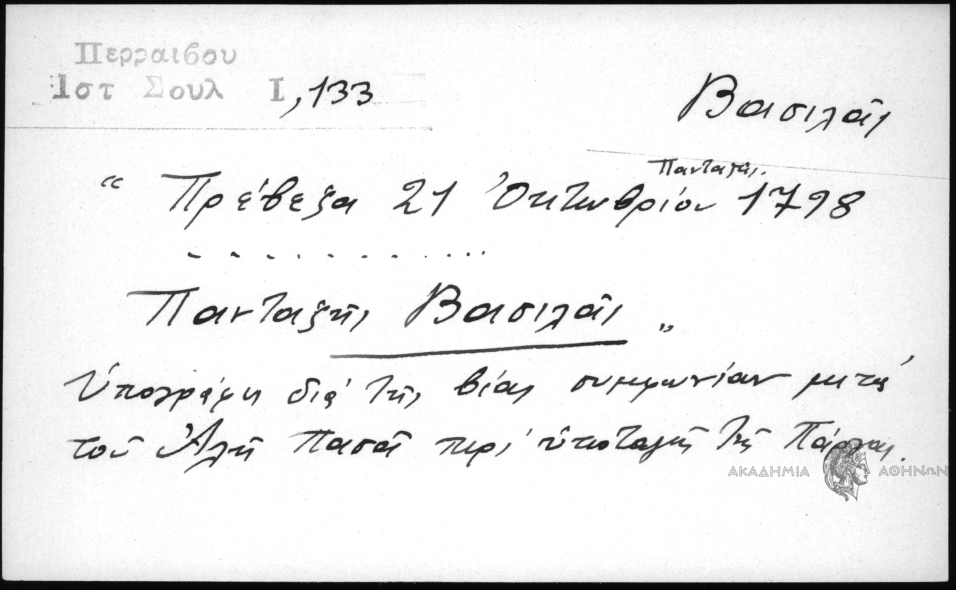 Περραιβου
Ιστ Σουλ Ι, 133
Βασιλᾶς
Πανταζῆς.
“ Πρέβεζα 21 Ὀκτωβρίου 1798
. . . . . . . . . . . .
Πανταζῆς Βασιλᾶς „
Ὑπογράφει διὰ τῆς βίας συμφωνίαν μετὰ
τοῦ Ἀλῆ Πασᾶ περὶ ὑποταγῆς τῆς Πάργας.
ΑΚΑΔΗΜΙΑ ΑΘΗΝΩΝ